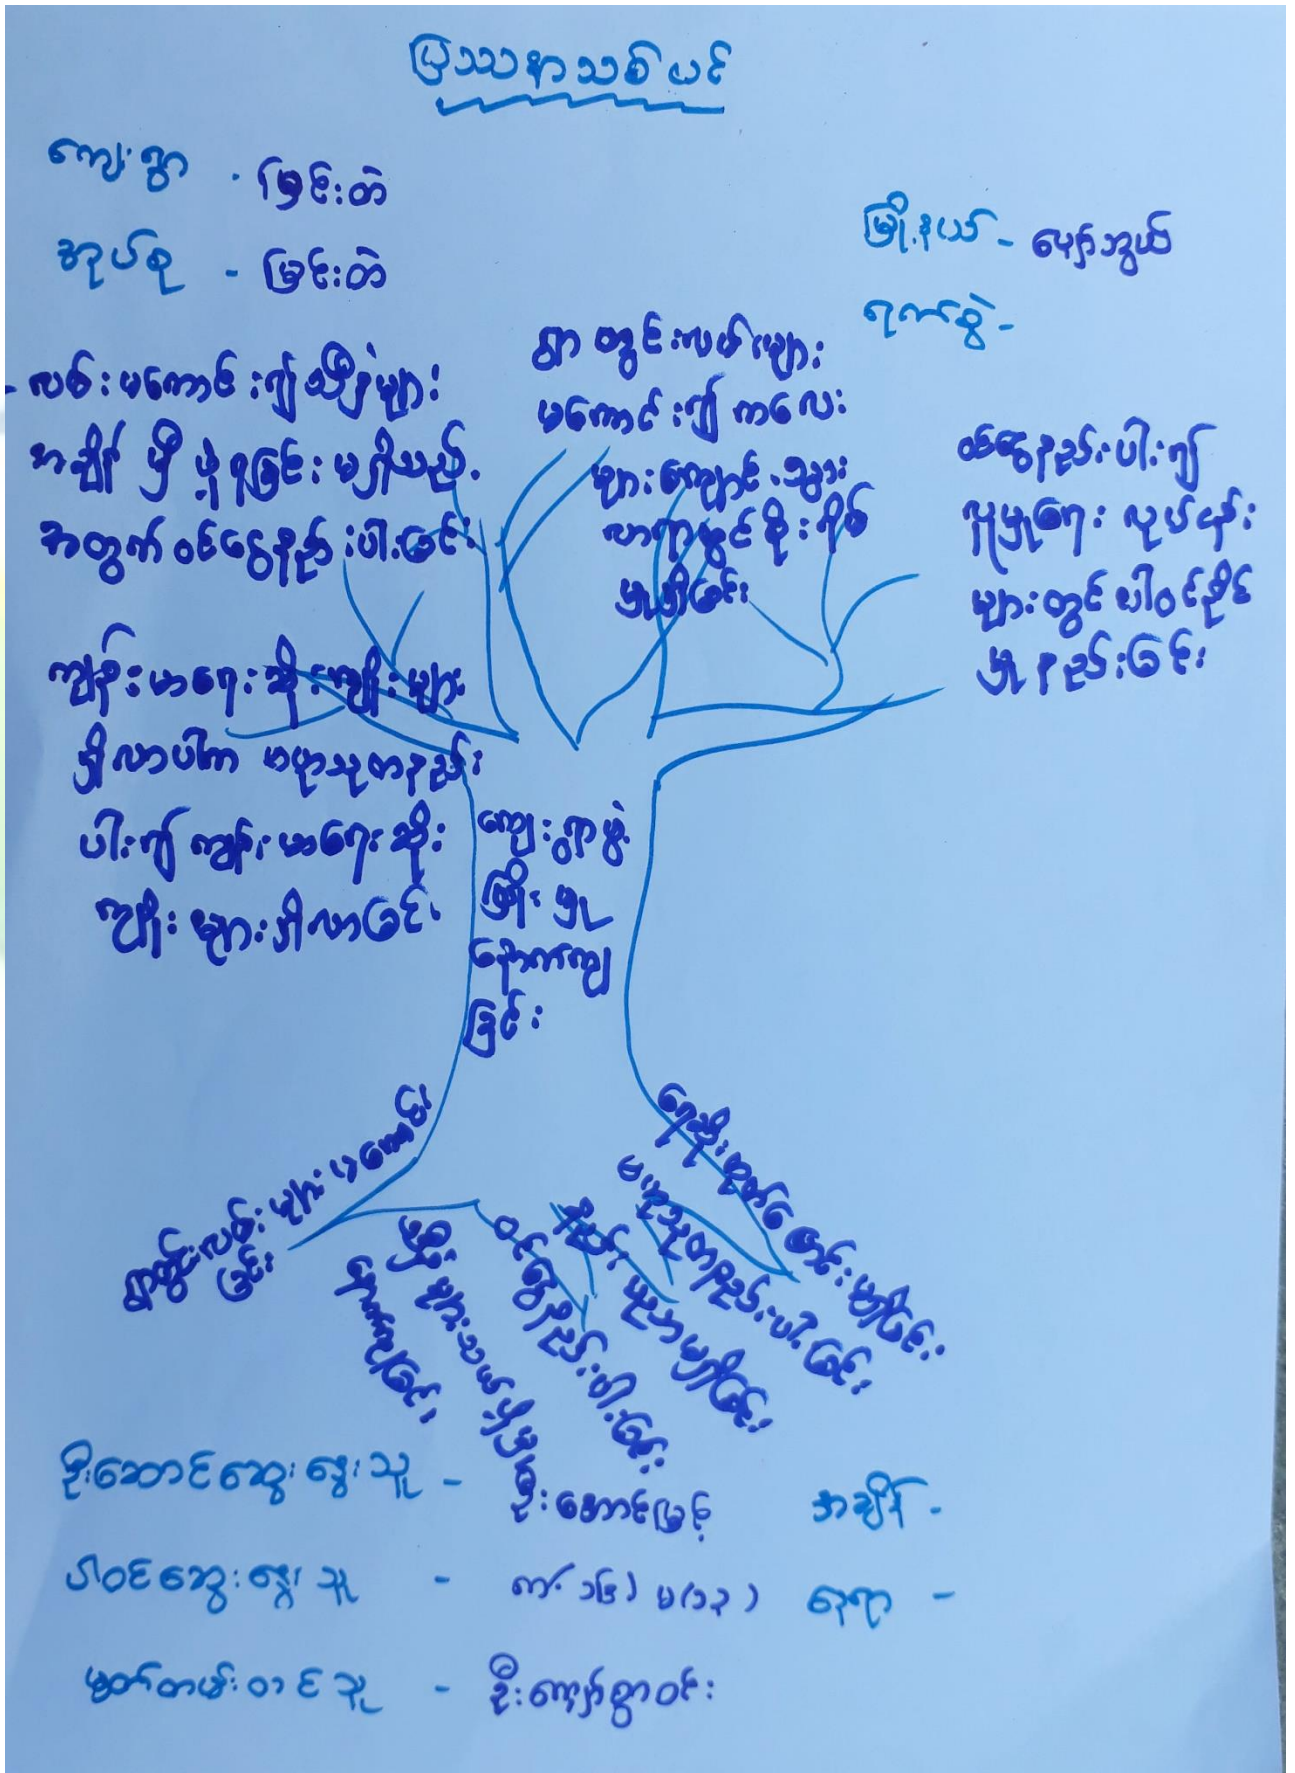 ပြဿနာသစ်ပင်
ကျေးရွာ - မြှင်းတဲ
အုပ်စု - မြှင်းတဲ
မြို့နယ် - ပျော်ဘွယ်
ရက်စွဲ -
- လမ်းမကောင်း၍ သီးနှံများ
အချိန်မှီ ပို့၍ရခြင်း မရှိသည့်
အတွက် ဝင်ငွေနည်းပါးခြင်း
ရွာတွင်းလမ်းများ
မကောင်း၍ ကလေး
များကျောင်းသွား
လာရာတွင် စိုးရိမ်
မှုရှိခြင်း
ဝင်ငွေနည်းပါး၍
လူမှုရေး လုပ်ငန်း
များတွင် ပါဝင်နိုင်
မှု နည်းခြင်း
ကျန်းမာရေးဆိုးကျိုးများ
ရှိလာပါက ဗဟုသုတနည်း
ပါး၍ ကျန်းမာရေးဆိုး
ကျိုးများရှိလာခြင်း
ကျေးရွာဖွံ့
ဖြိုးမှု
နောက်ကျ
ခြင်း
ရွာတွင်းလမ်းများ မကောင်း
ခြင်း
နောက်ကျခြင်း
ဝင်ငွေနည်းပါးခြင်း
နည်းပညာမရှိခြင်း
ဗဟုသုတနည်းပါးခြင်း
ရေဆိုးထုတ်မြောင်းမရှိခြင်း
ဦးဆောင်ဆွေးနွေးသူ - ဦးအောင်မြင့်
အချိန် -
ပါဝင်ဆွေးနွေးသူ - ကျား(၁၆) မ(၁၃)
နေရာ -
မှတ်တမ်းတင်သူ - ဦးကျော်စွာဝင်း